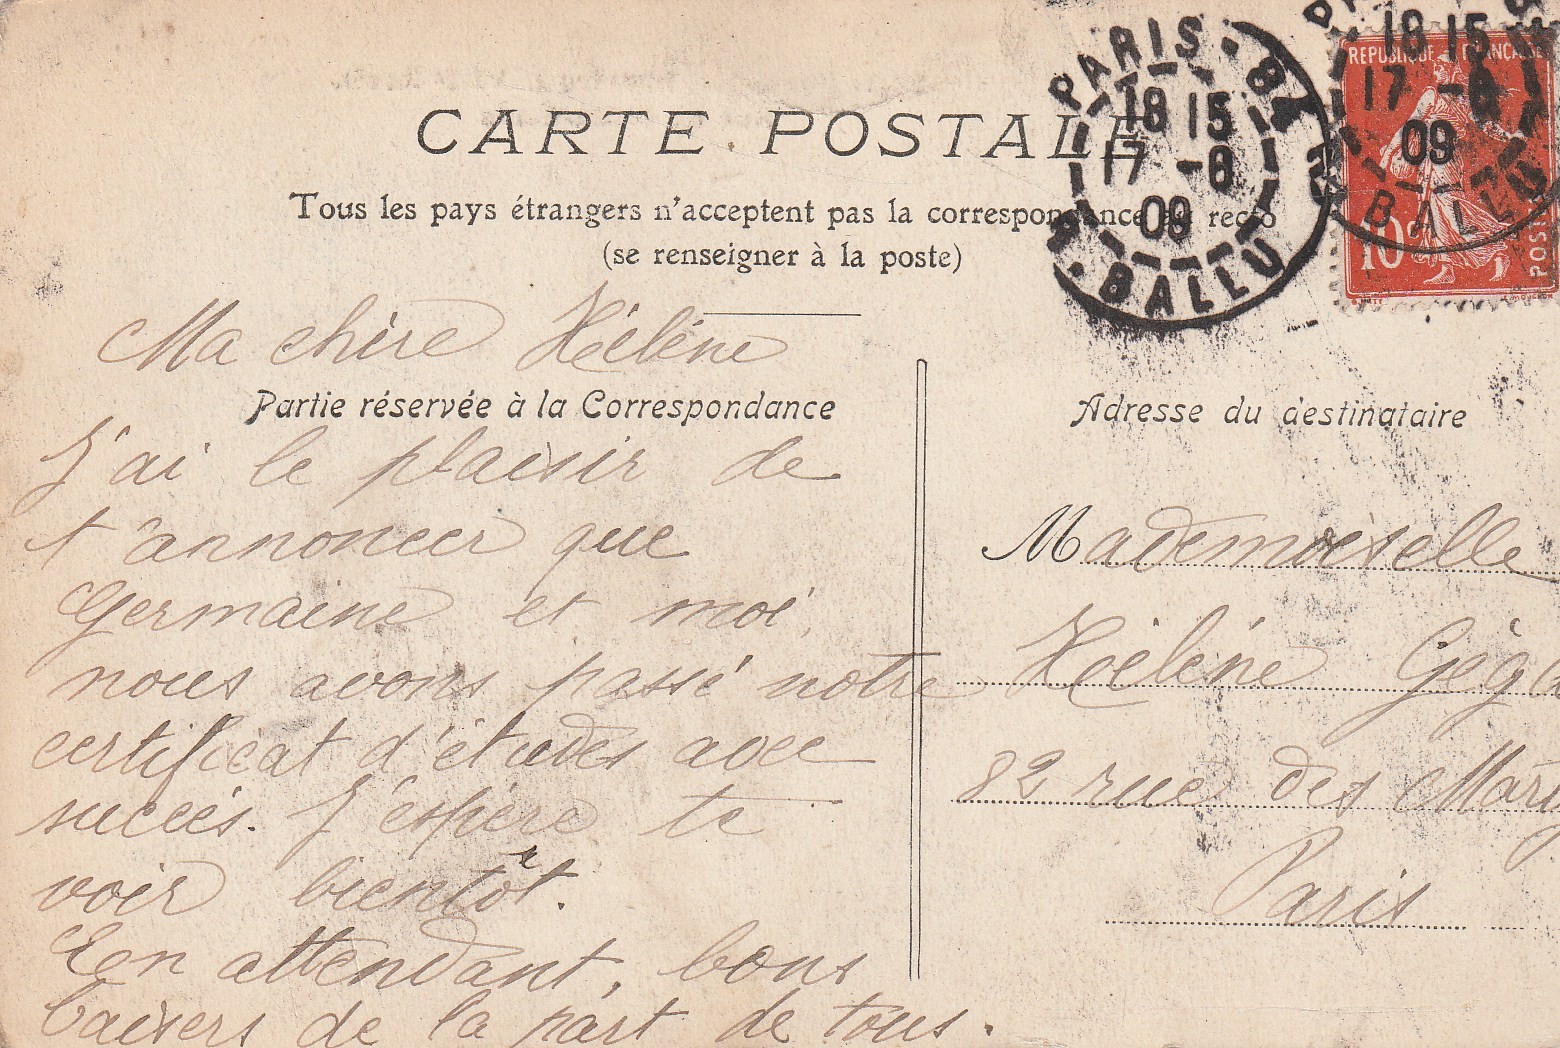 CARTE POSTALE
Tous les pays étrangers n'acceptent pas la correspondance au recto
(se renseigner à la poste)
PARIS · 84
18 15
17 - 6
09
R. BALLU
18 15
17 - 6
09
BALLU
REPUBLIQUE FRANÇAISE
10 c
POSTES
Ma chère Hélène
Partie réservée à la Correspondance
J'ai le plaisir de
t'annoncer que
Germaine et moi,
nous avons passé notre
certificat d'études avec
succès. J'espère te
voir bientôt.
En attendant, bons
baisers de la part de tous.
Adresse du destinataire
Mademoiselle
Hélène
82 rue des
Paris